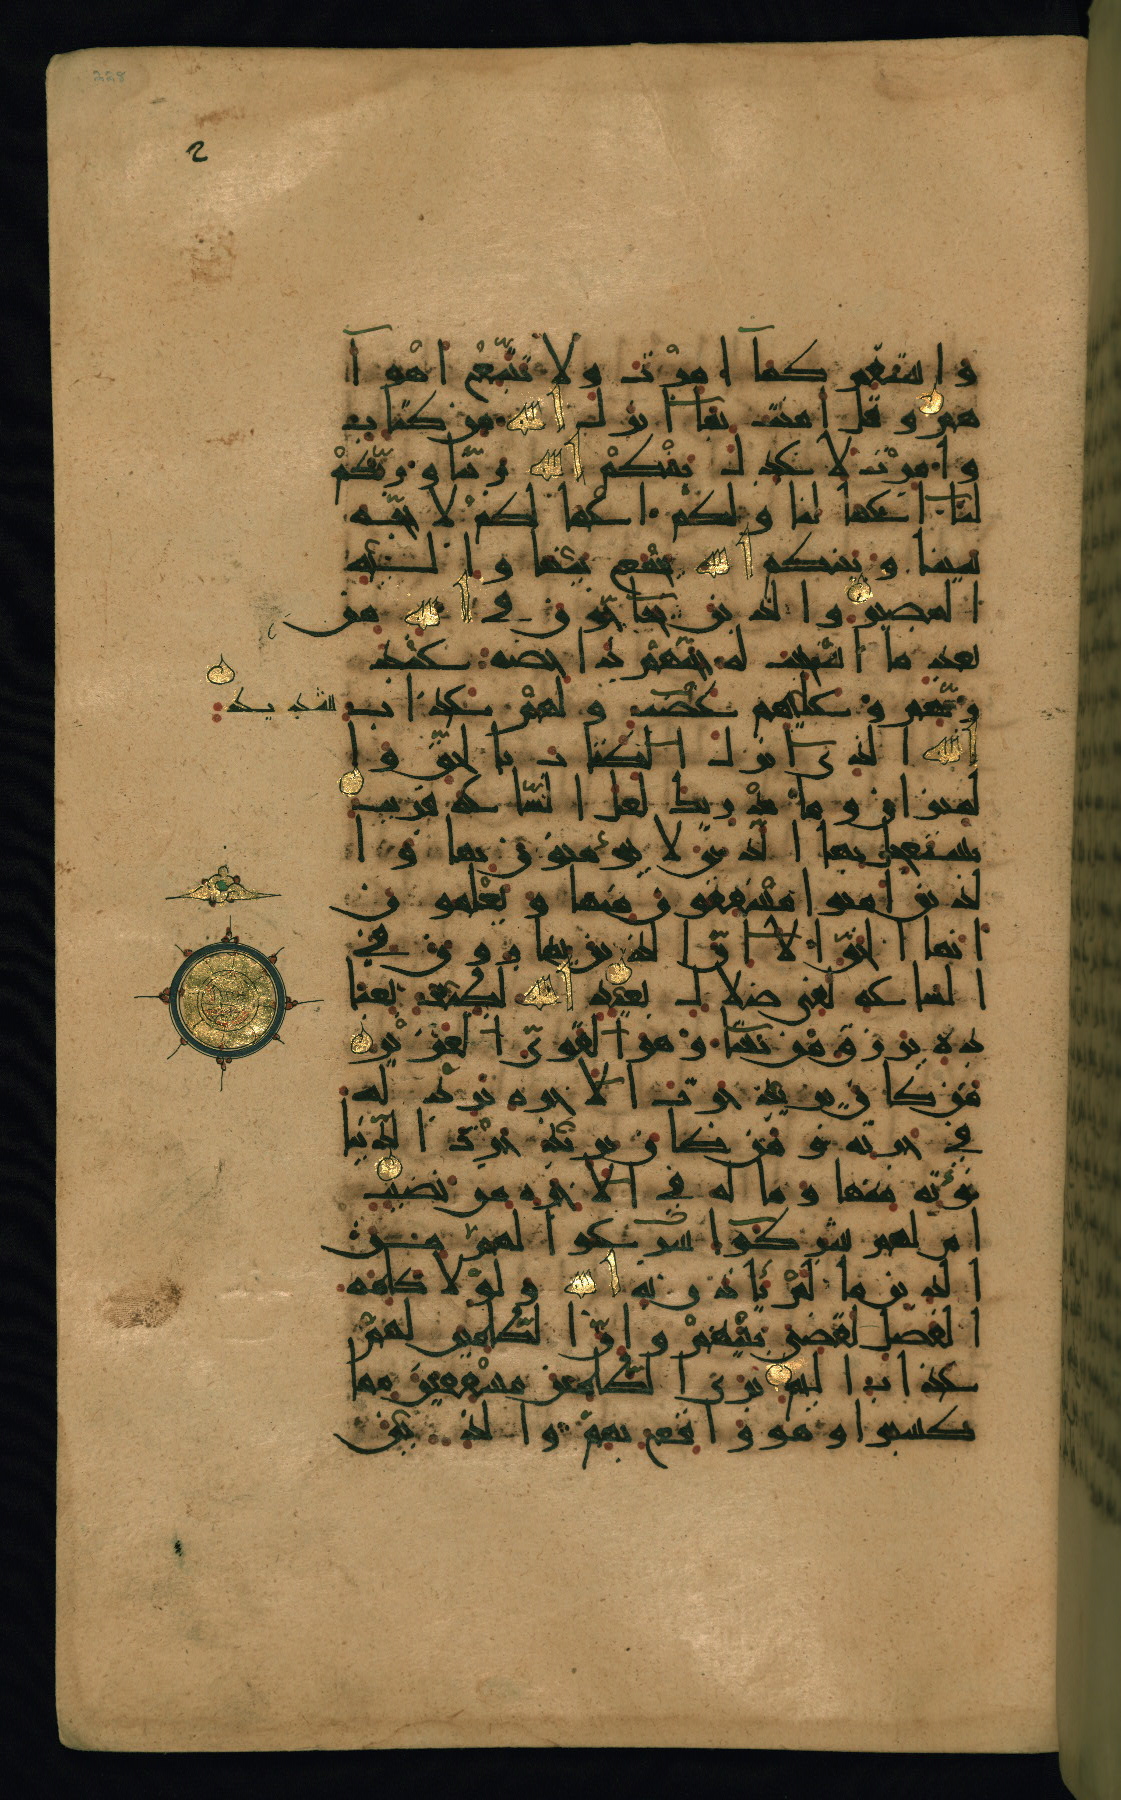 228
2
واستقم كما امرت ولا تتبع اهوا
هم وقل امنت بما انزل الله من كتاب
وامرت لاعدل بينكم الله ربنا وربكم
لنا اعملنا ولكم اعملكم لا حجة
بيننا وبينكم الله يجمع بيننا واليه
المصير والذين يحاجون في الله من
بعد ما استجيب له حجتهم داحضة عند
ربهم وعليهم غضب ولهم عذاب شديد
الله الذي انزل الكتاب بالحق وا
لميزان وما يدريك لعل الساعة قريب
يستعجل بها الذين لا يؤمنون بها وا
لذين امنوا مشفقون منها ويعلمون
انها الحق الا ان الذين يمارون في
الساعة لفي ضلال بعيد الله لطيف بعبا
ده يرزق من يشا وهو القوي العزيز
من كان يريد حرث الاخرة نزد له
في حرثه ومن كان يريد حرث الدنيا
نؤته منها وما له في الاخرة من نصيب
ام لهم شركوا شرعوا لهم من
الدين ما لم ياذن به الله ولولا كلمة
الفصل لقضي بينهم وان الظلمين لهم
عذاب اليم ترى الظلمين مشفقين مما
كسبوا وهو واقع بهم والذين